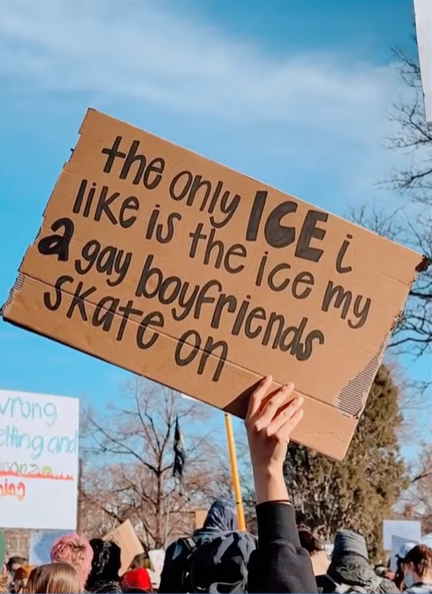 the only ICE i
like is the ice my
a gay boyfriends
skate on
wrong
and